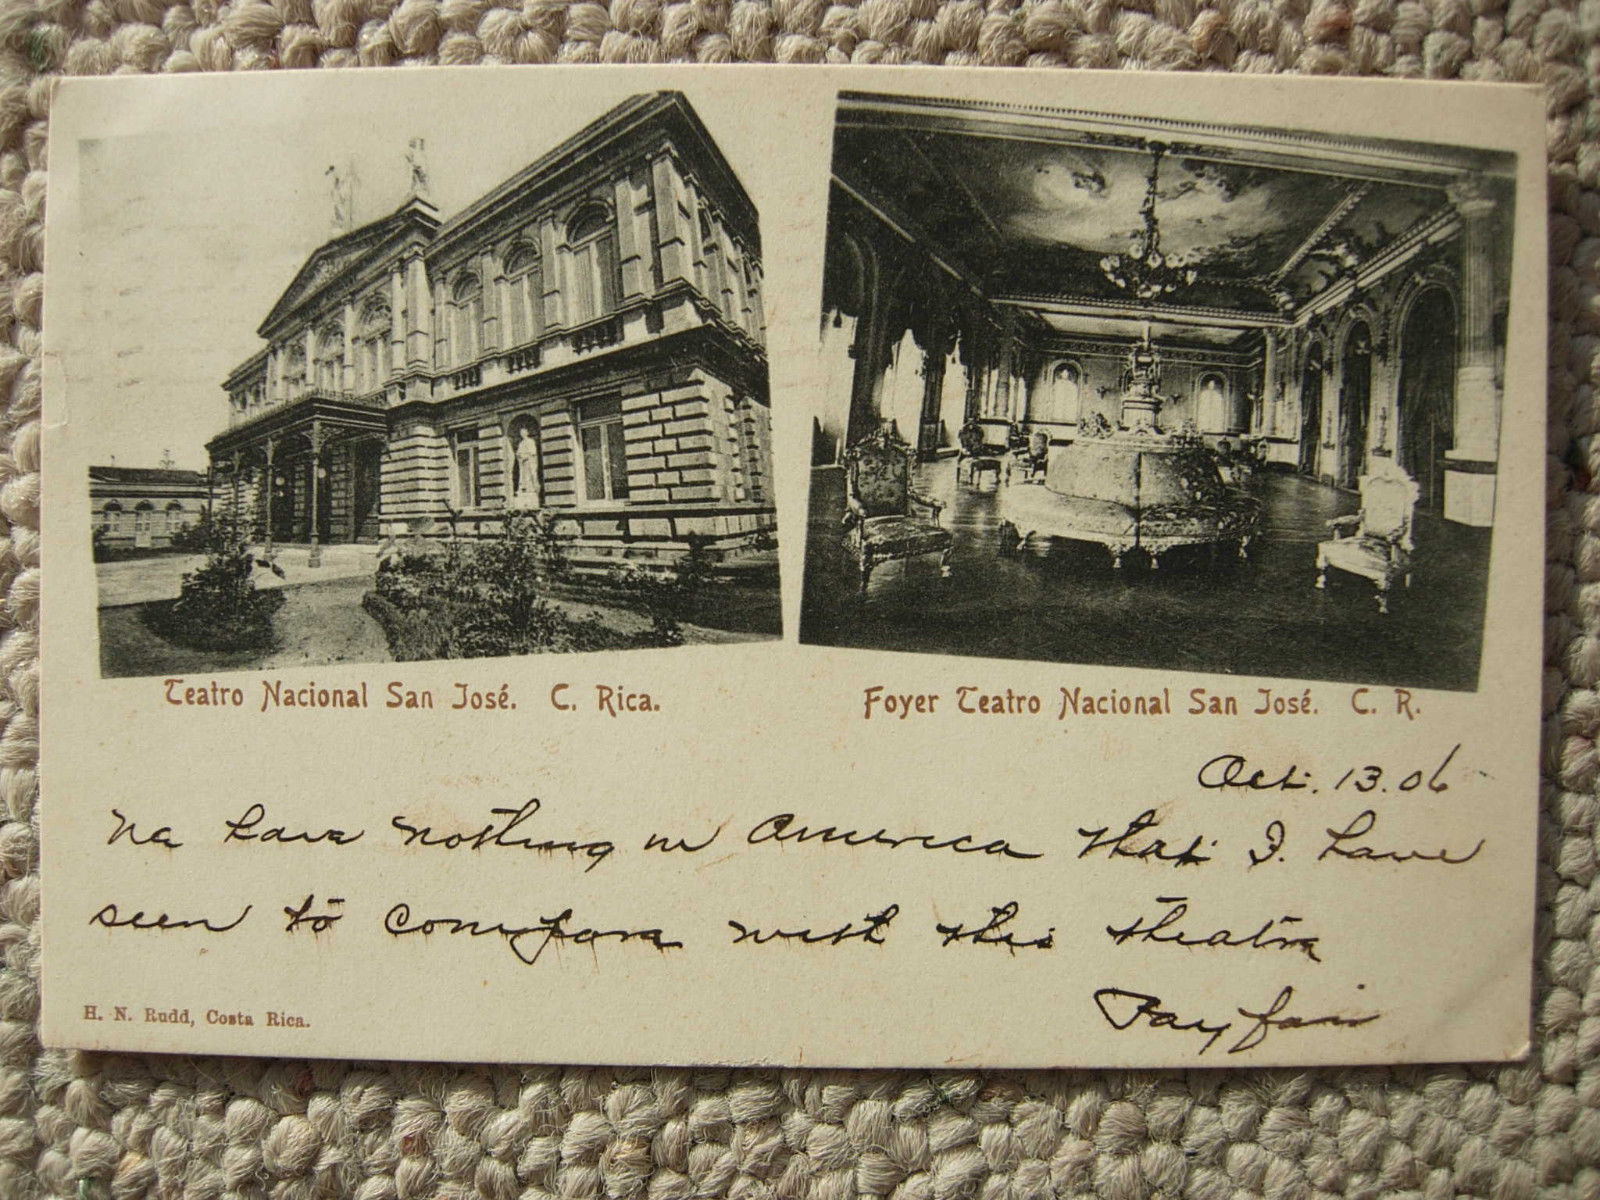 Teatro Nacional San José. C. Rica.
Foyer Teatro Nacional San José. C. R.
Oct. 13. 06
We have nothing in America that I have
seen to compare with this theatre
Fayfair
H. N. Rudd, Costa Rica.